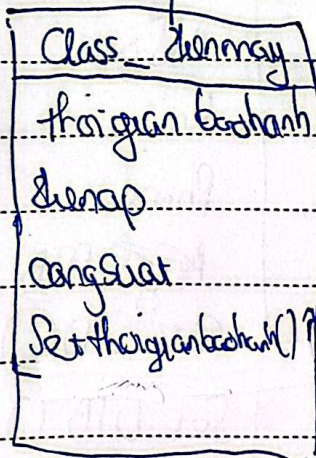 Class_ dienmay
thoigian baohanh
dienap
congsuat
Setthoigianbaohanh()